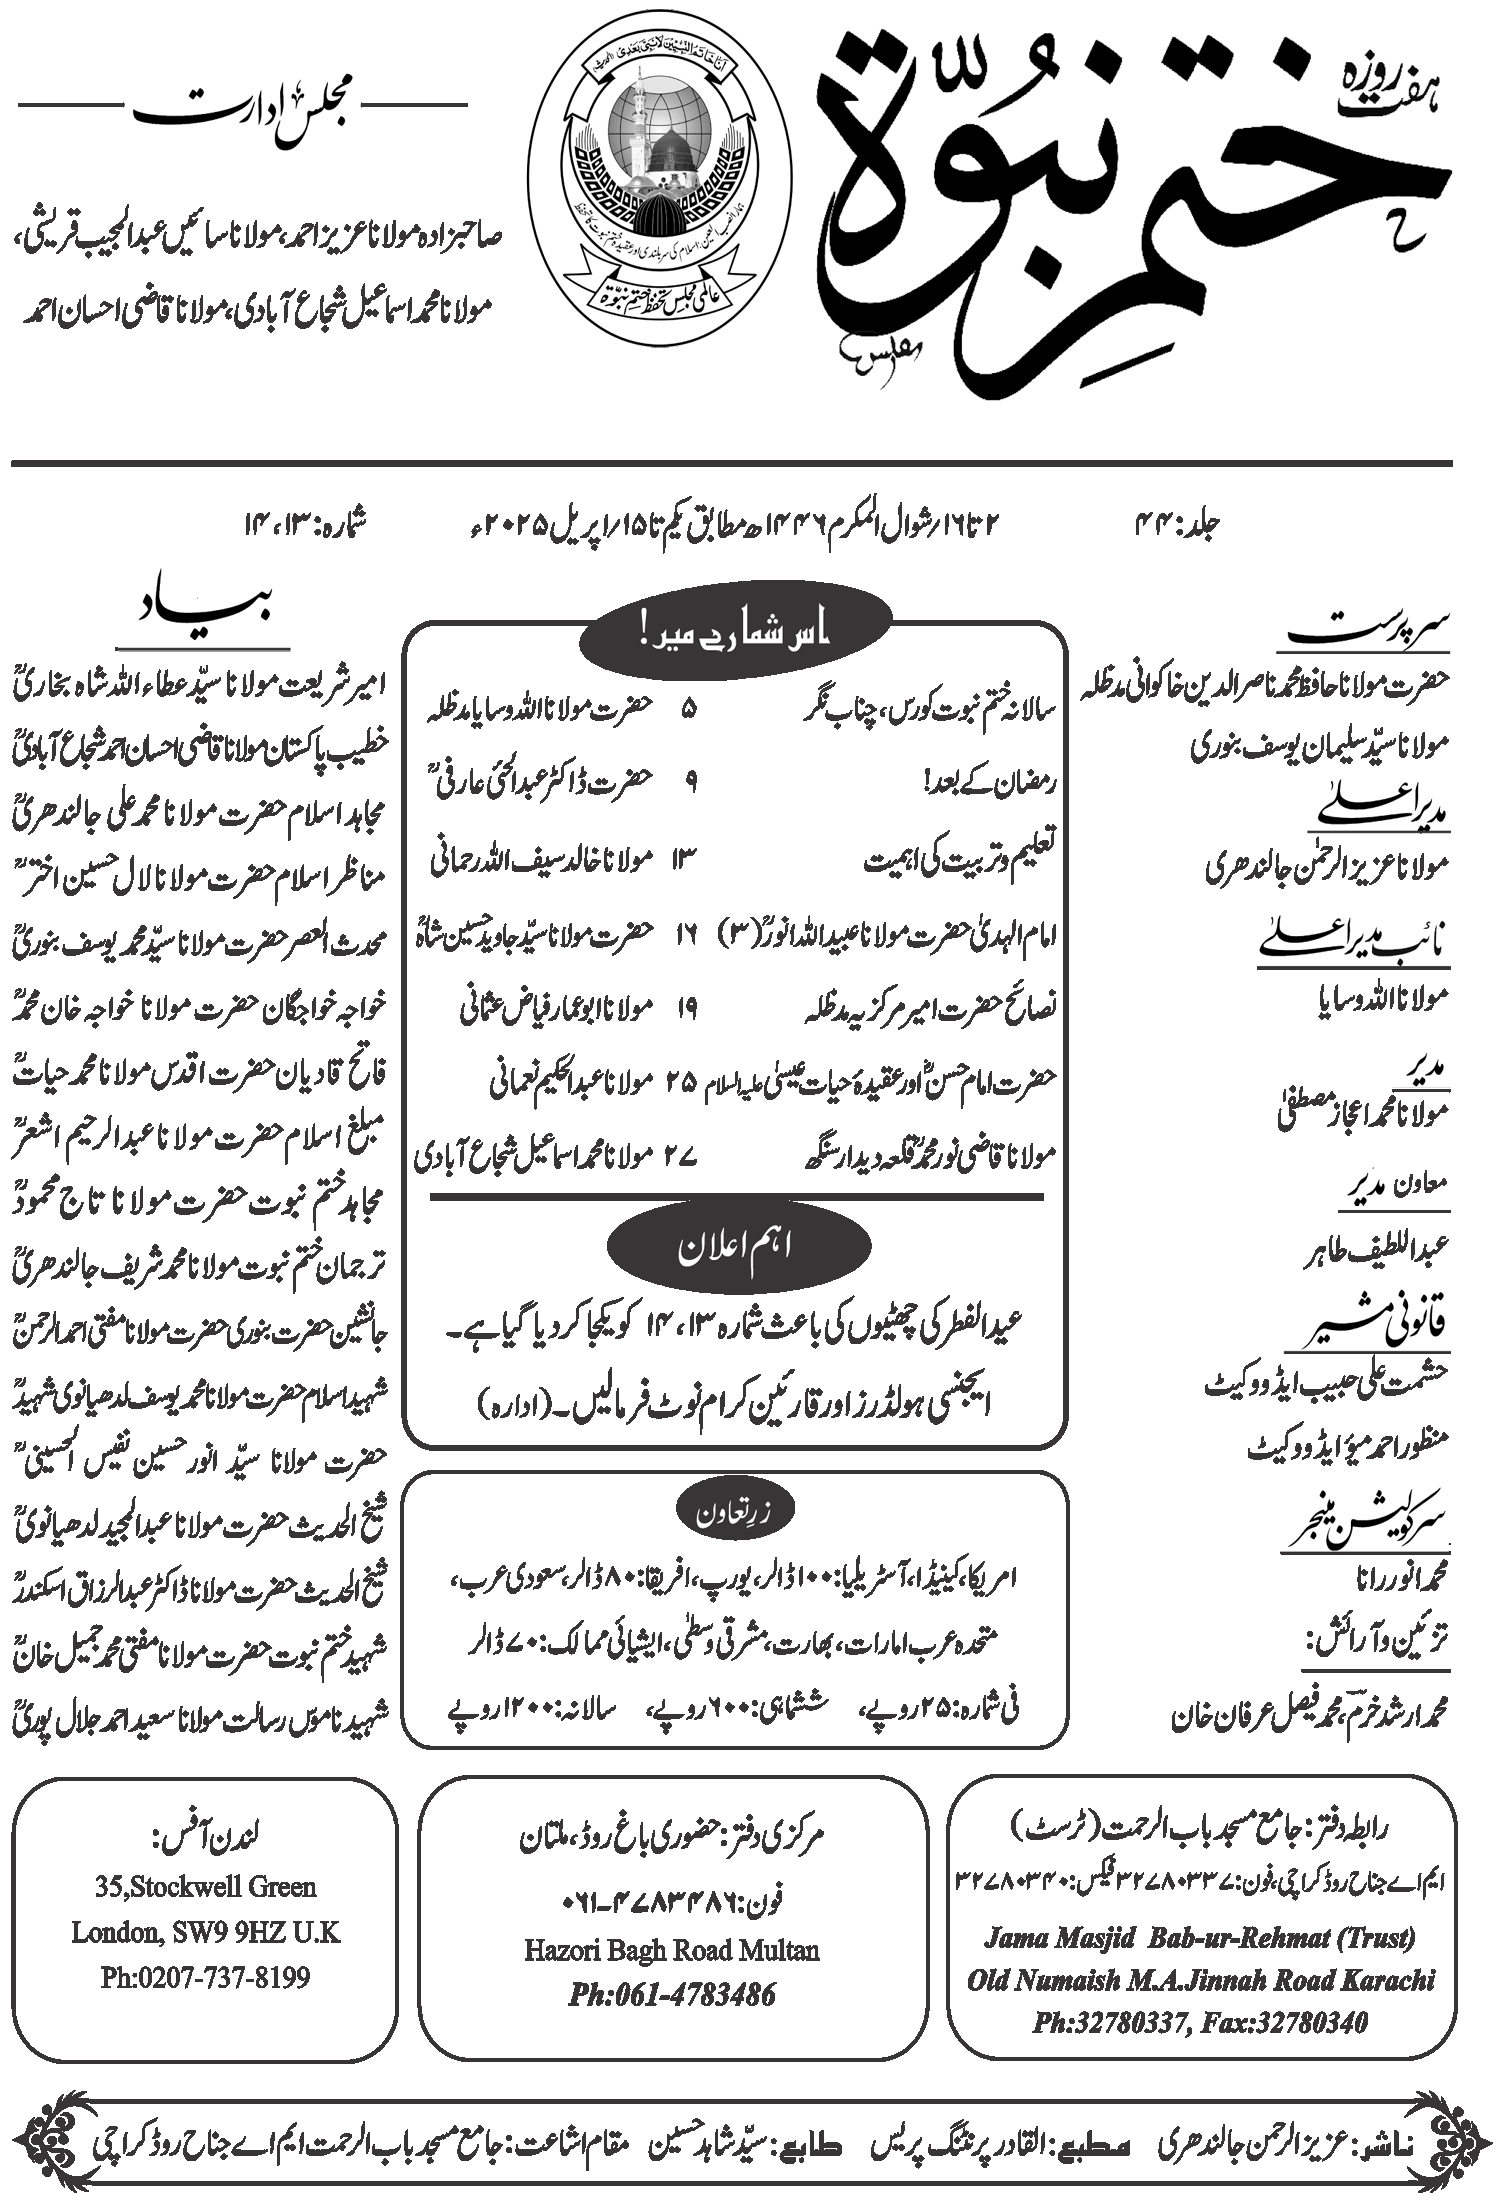 ہفت روزہ
ختم نبوّۃ
انا خاتم النبیین لا نبی بعدی
عالمی مجلس تحفظ ختم نبوّۃ
مجلس ادارت
صاحبزادہ مولانا عزیز احمد، مولانا سائیں عبدالمجیب قریشی،
مولانا محمد اسماعیل شجاع آبادی، مولانا قاضی احسان احمد
جلد: ۴۴
۲ تا ۱۶؍شوال المکرم ۱۴۴۶ھ مطابق یکم تا ۱۵؍اپریل ۲۰۲۵ء
شمارہ: ۱۳، ۱۴
سرپرست
حضرت مولانا حافظ محمد ناصر الدین خاکوانی مدظلہ
مولانا سیّد سلیمان یوسف بنوری
مدیر اعلیٰ
مولانا عزیز الرحمٰن جالندھری
نائب مدیر اعلیٰ
مولانا اللہ وسایا
مدیر
مولانا محمد اعجاز مصطفیٰ
معاون مدیر
عبداللطیف طاہر
قانونی مشیر
حشمت علی حبیب ایڈووکیٹ
منظور احمد میؤ ایڈووکیٹ
سرکولیشن مینجر
محمد انور رانا
تزئین و آرائش:
محمد ارشد خرم، محمد فیصل عرفان خان
اس شمارے میں!
سالانہ ختم نبوت کورس، چناب نگر ۵ حضرت مولانا اللہ وسایا مدظلہ
رمضان کے بعد! ۹ حضرت ڈاکٹر عبدالحئی عارفیؒ
تعلیم و تربیت کی اہمیت ۱۳ مولانا خالد سیف اللہ رحمانی
امام الہدیٰ حضرت مولانا عبیداللہ انورؒ (۳) ۱۶ حضرت مولانا سیّد جاوید حسین شاہؒ
نصائح حضرت امیر مرکزیہ مدظلہ ۱۹ مولانا ابوعمار فیاض عثمانی
حضرت امام حسنؓ اور عقیدۂ حیات عیسیٰ علیہ السلام ۲۵ مولانا عبدالحکیم نعمانی
مولانا قاضی نور محمدؒ قلعہ دیدار سنگھ ۲۷ مولانا محمد اسماعیل شجاع آبادی
اہم اعلان
عیدالفطر کی چھٹیوں کی باعث شمارہ ۱۳، ۱۴ کو یکجا کردیا گیا ہے۔
ایجنسی ہولڈرز اور قارئین کرام نوٹ فرمالیں۔ (ادارہ)
زرِ تعاون
امریکا، کینیڈا، آسٹریلیا: ۱۰۰ ڈالر، یورپ، افریقا: ۸۰ ڈالر، سعودی عرب،
متحدہ عرب امارات، بھارت، مشرقِ وسطیٰ، ایشیائی ممالک: ۷۰ ڈالر
فی شمارہ: ۲۵ روپے، ششماہی: ۶۰۰ روپے، سالانہ: ۱۲۰۰ روپے
بیاد
امیر شریعت مولانا سیّد عطاء اللہ شاہ بخاریؒ
خطیب پاکستان مولانا قاضی احسان احمد شجاع آبادیؒ
مجاہد اسلام حضرت مولانا محمد علی جالندھریؒ
مناظر اسلام حضرت مولانا لال حسین اخترؒ
محدث العصر حضرت مولانا سیّد محمد یوسف بنوریؒ
خواجہ خواجگان حضرت مولانا خواجہ خان محمدؒ
فاتح قادیان حضرت اقدس مولانا محمد حیاتؒ
مبلغ اسلام حضرت مولانا عبدالرحیم اشعرؒ
مجاہد ختم نبوت حضرت مولانا تاج محمودؒ
ترجمان ختم نبوت مولانا محمد شریف جالندھریؒ
جانشین حضرت بنوری حضرت مولانا مفتی احمد الرحمنؒ
شہید اسلام حضرت مولانا محمد یوسف لدھیانوی شہیدؒ
حضرت مولانا سیّد انور حسین نفیس الحسینیؒ
شیخ الحدیث حضرت مولانا عبدالمجید لدھیانویؒ
شیخ الحدیث حضرت مولانا ڈاکٹر عبدالرزاق اسکندرؒ
شہید ختم نبوت حضرت مولانا مفتی محمد جمیل خانؒ
شہید ناموس رسالت مولانا سعید احمد جلال پوریؒ
رابطہ دفتر: جامع مسجد باب الرحمت (ٹرسٹ)
ایم اے جناح روڈ کراچی، فون: ۳۲۷۸۰۳۳۷ فیکس: ۳۲۷۸۰۳۴۰
Jama Masjid Bab-ur-Rehmat (Trust)
Old Numaish M.A.Jinnah Road Karachi
Ph:32780337, Fax:32780340
مرکزی دفتر: حضوری باغ روڈ، ملتان
فون: ۰۶۱-۴۷۸۳۴۸۶
Hazori Bagh Road Multan
Ph:061-4783486
لندن آفس:
35,Stockwell Green
London, SW9 9HZ U.K
Ph:0207-737-8199
ناشر: عزیز الرحمن جالندھری مطبع: القادر پرنٹنگ پریس طابع: سیّد شاہد حسین مقام اشاعت: جامع مسجد باب الرحمت ایم اے جناح روڈ کراچی